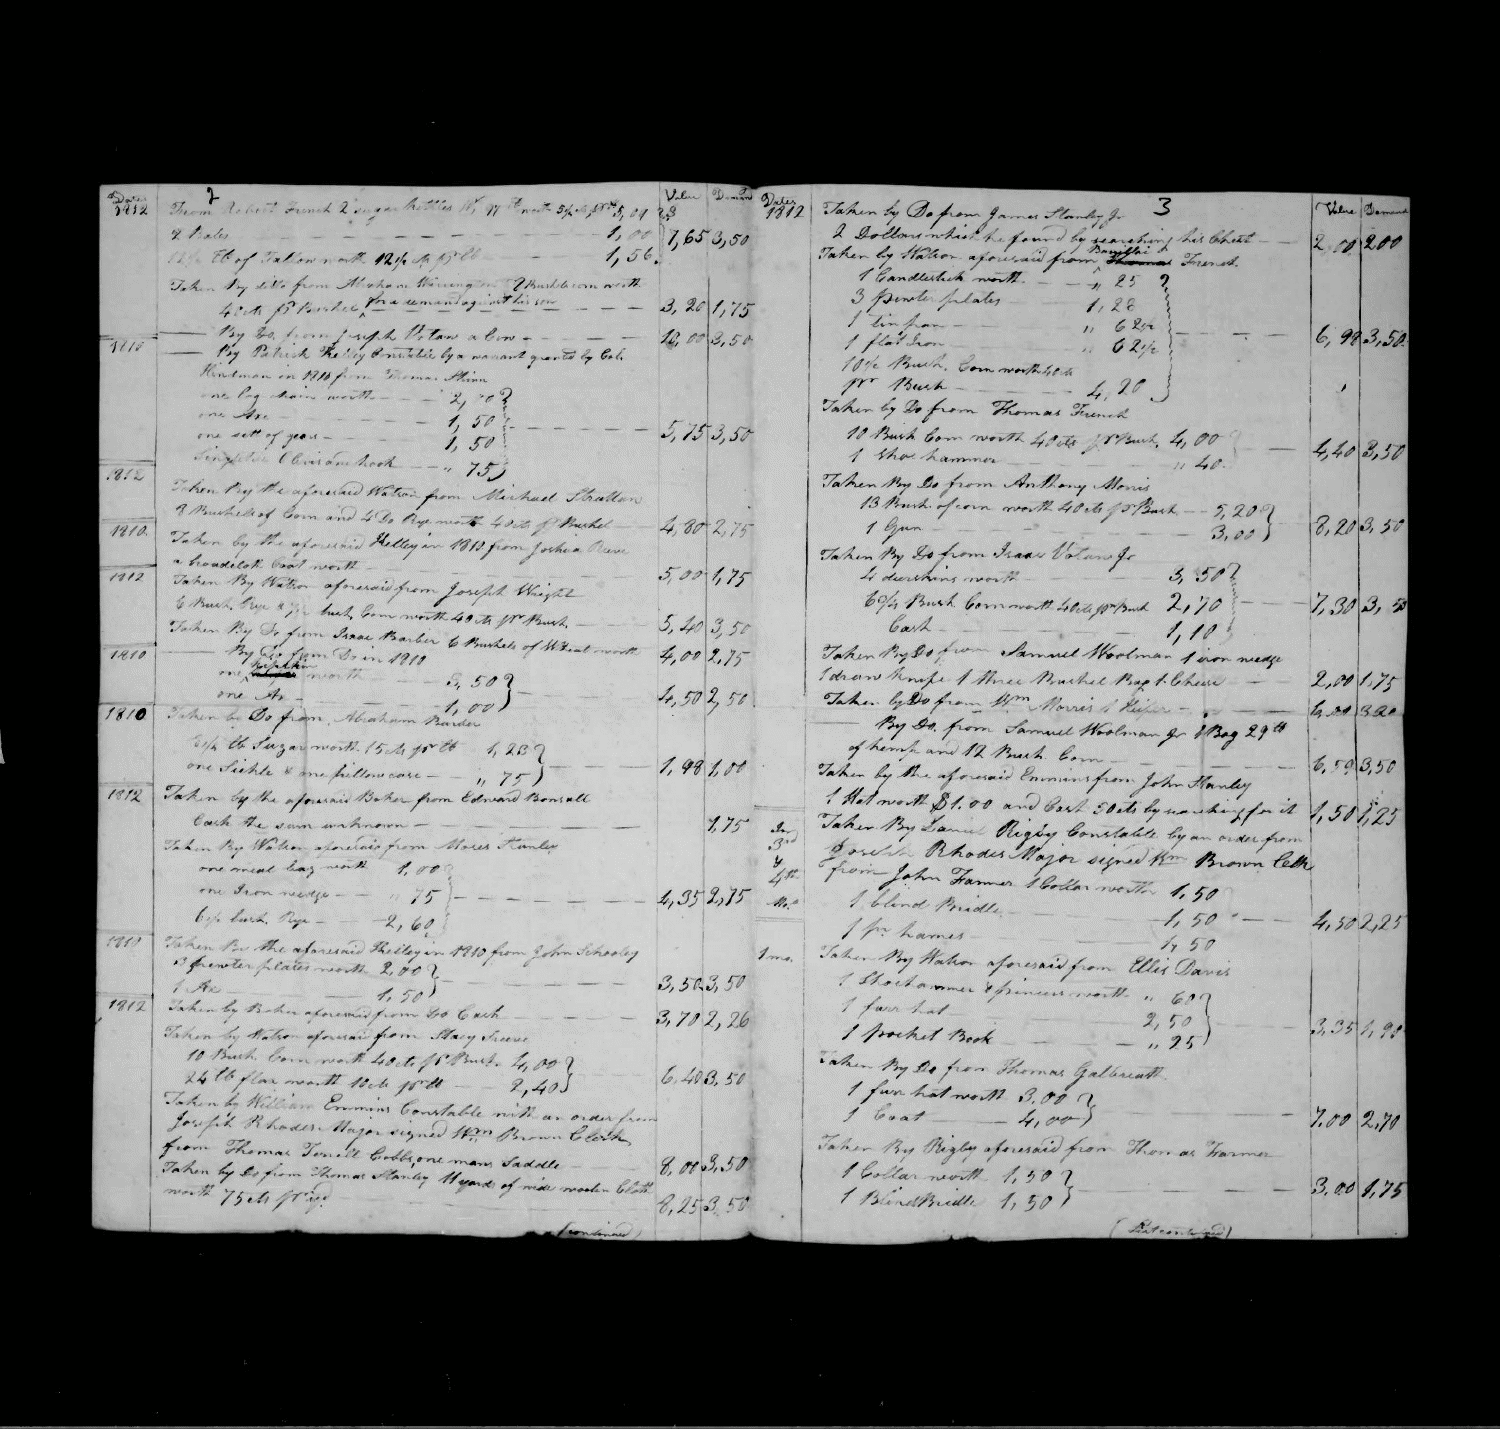 Dates 2 Value Demand
1812 From Robert French 2 sugar kettles Wt 97 lb worth 5,09
2 Bales 1,00 7,65 3,50
12½ lb of Tallow worth 12½ cts pr lb 1,56
Taken by ditto from Abraham Warrington 8 Bushels corn worth
40 cts pr Bushel for a demand against his son 3,20 1,75
By Do. from Joseph Votaw a Cow 12,00 3,50
1810 By Patrick Kelley Constable by a warrant granted by Colo
Hindman in 1810 from Thomas Shinn
one log chain worth 2,00
one Axe 1,50 5,75 3,50
one sett of gears 1,50
Singletree Clevis and hook " 75
1812
Taken By the aforesaid Watson from Michael Stratton
8 Bushels of Corn and 4 Do Rye worth 40 cts pr Bushel 4,80 2,75
1810. Taken by the aforesaid Kelley in 1810 from Joshua Reeve
a broadcloth Coat worth 5,00 1,75
1812 Taken By Watson aforesaid from Joseph Wright
6 Bush. Rye & 7½ bush. Corn worth 40 cts pr Bush 5,40 3,50
Taken By Do from Isaac Barber 6 Bushels of Wheat worth 4,00 2,75
1810 By Do from Do in 1810
one worth 3,50
one Ax 1,00 4,50 2,50
1810 Taken by Do from Abraham Barber
8½ lb Sugar worth 15 cts pr lb 1,23
one Sickle & one pillow case " 75 1,98 1,00
1812 Taken by the aforesaid Baker from Edward Bonsall
Cash the sum unknown 1,75
Taken By Watson aforesaid from Moses Stanley
one meal bag worth 1,00
one Iron wedge " 75 4,35 2,75
6½ bush. Rye 2,60
1810 Taken By the aforesaid Kelley in 1810 from John Schooley
3 pewter plates worth 2,00
1 Ax 1,50 3,50 3,50
1812 Taken by Baker aforesaid from Do Cash 3,70 2,26
Taken by Watson aforesaid from Stacy Reeve
10 Bush Corn worth 40 cts pr Bush 4,00
24 lb flax worth 10 cts pr lb 2,40 6,40 3,50
Taken by William Emmins Constable with an order from
Joseph Rhodes Major signed Wm Brown Clerk
from Thomas Terrell Cobbs, one mans Saddle 8,00 3,50
Taken by Do from Thomas Stanley 11 yards of wide woolen Cloth
worth 75 cts pr yd 8,25 3,50
(continued)
Dates 3 Value Demand
1812 Taken by Do from James Stanley Jr
2 Dollars which he found by searching his Chest 2,00 2,00
Taken by Watson aforesaid from Barzillai Thomas French
1 Candlestick worth " 25
3 pewter plates 1,28
1 tin pan " 62½
1 flat Iron " 62½ 6,98 3,50
10½ Bush. Corn worth 40 cts
pr Bush 4,20
Taken by Do from Thomas French
10 Bush Corn worth 40 cts pr Bush, 4,00
1 Shoe hammer " 40 4,40 3,50
Taken By Do from Anthony Morris
13 Bush of corn worth 40 cts pr Bush 5,20
1 Gun 3,00 8,20 3,50
Taken By Do from Isaac Votaw Jr
4 deerskins worth 3,50
6¾ Bush Corn worth 40 cts pr Bush 2,70 7,30 3,50
Cash 1,10
Taken By Do from Samuel Woolman 1 iron wedge
1 draw knife 1 three Bushel Bag 1 Cheese 2,00 1,75
Taken by Do from Wm Morris 1 Heifer 6,00 3,20
By Do. from Samuel Woolman Jr 1 Bag 29 lb
of hemp and 12 Bush Corn 6,59 3,50
Taken by the aforesaid Emmins from John Stanley
1 Hat worth $1.00 and Cash 50 cts by searching for it 1,50 1,25
In 3rd & 4th Mo. Taken By Daniel Rigby Constable by an order from
Joseph Rhodes Major signed Wm Brown Clk
from John Farmer 1 Collar worth 1,50
1 blind Bridle 1,50 4,50 2,25
1 pr hames 1,50
1 mo. Taken By Watson aforesaid from Ellis Davis
1 Shoe hammer & pincers worth " 60
1 furr hat 2,50
1 pocket Book " 25 3,35 1,90
Taken By Do from Thomas Galbreath
1 furr hat worth 3.00
1 Coat 4,00 7,00 2,70
Taken By Rigby aforesaid from Thomas Farmer
1 Collar worth 1,50
1 Blind Bridle 1,50 3,00 1,75